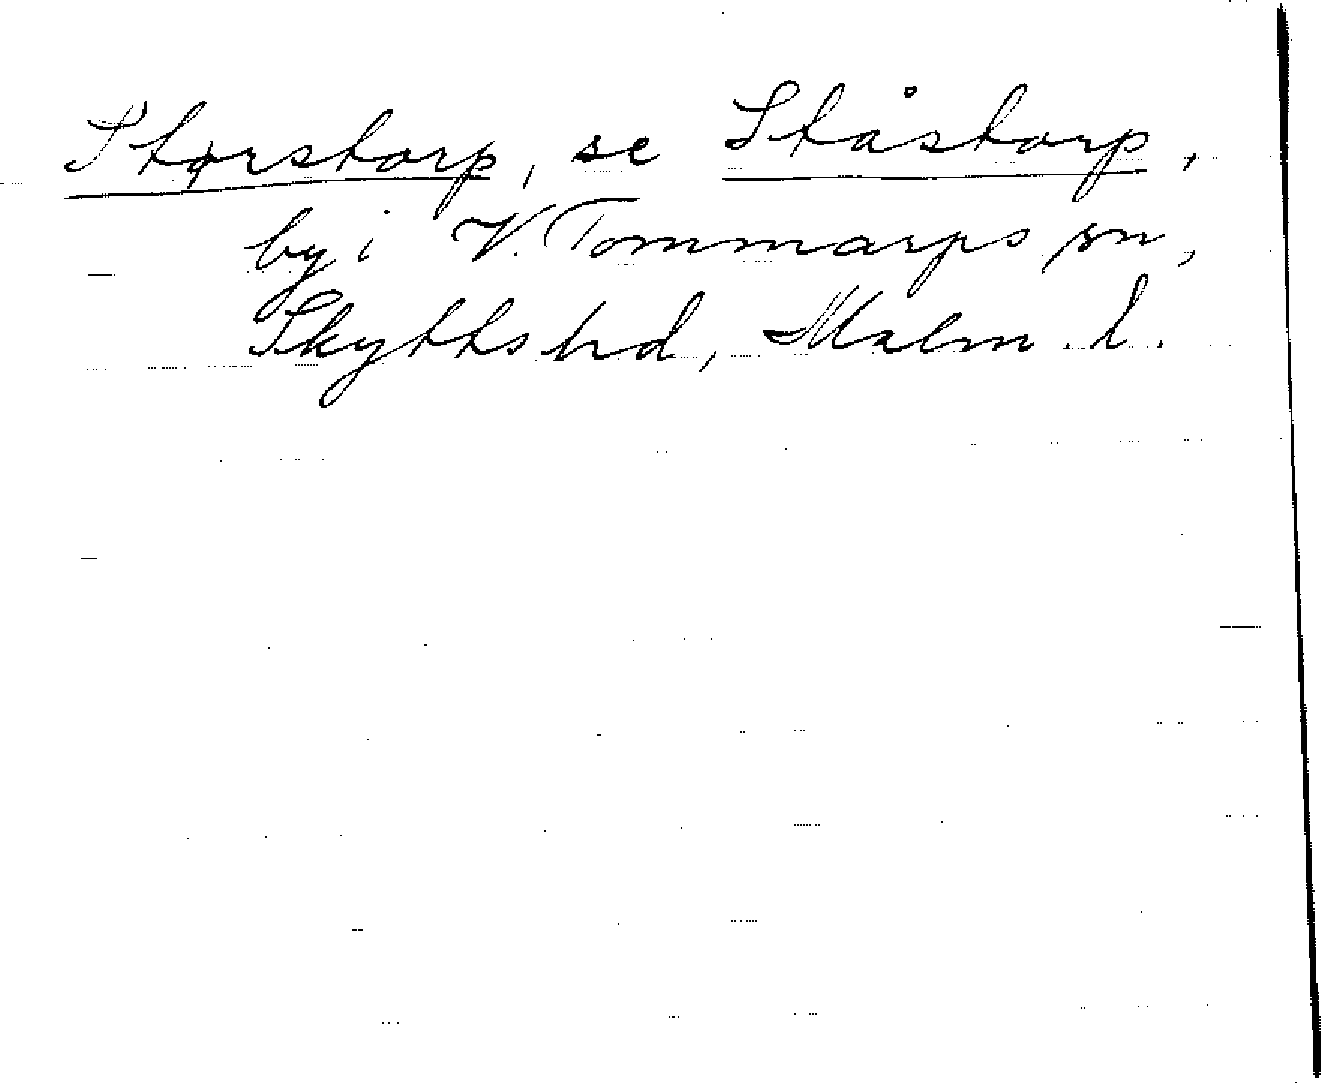 Størstorp, se Ståstorp,
by i V. Tommarps sn,
Skytts hd, Malm. l.